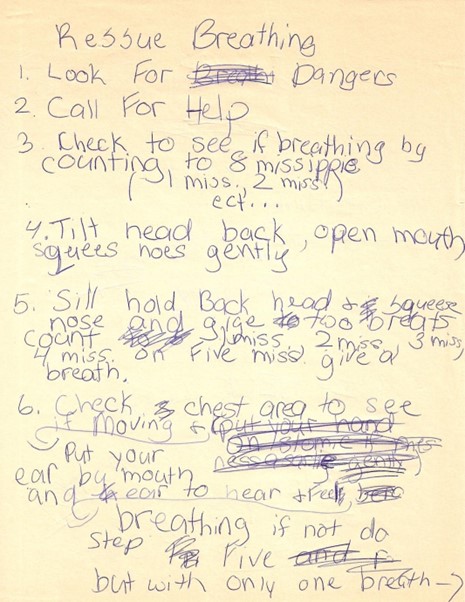 Ressue Breathing
1. Look For Dangers
2. Call For Help
3. Check to see if breathing by
counting to 8 missippie
( 1 miss., 2 miss.)
ect...
4. Tilt head back, open mouth
squees noes gently
5. Sill hold Back head & squeeze
nose and give too breats
count 1 miss, 2 miss, 3 miss,
4 miss. on Five miss. give a
breath.
6. Check chest area to see
if moving & put your hand
on
Put your gently
ear by mouth
and ear to hear & feel
breathing if not do
step Five
but with only one breath →